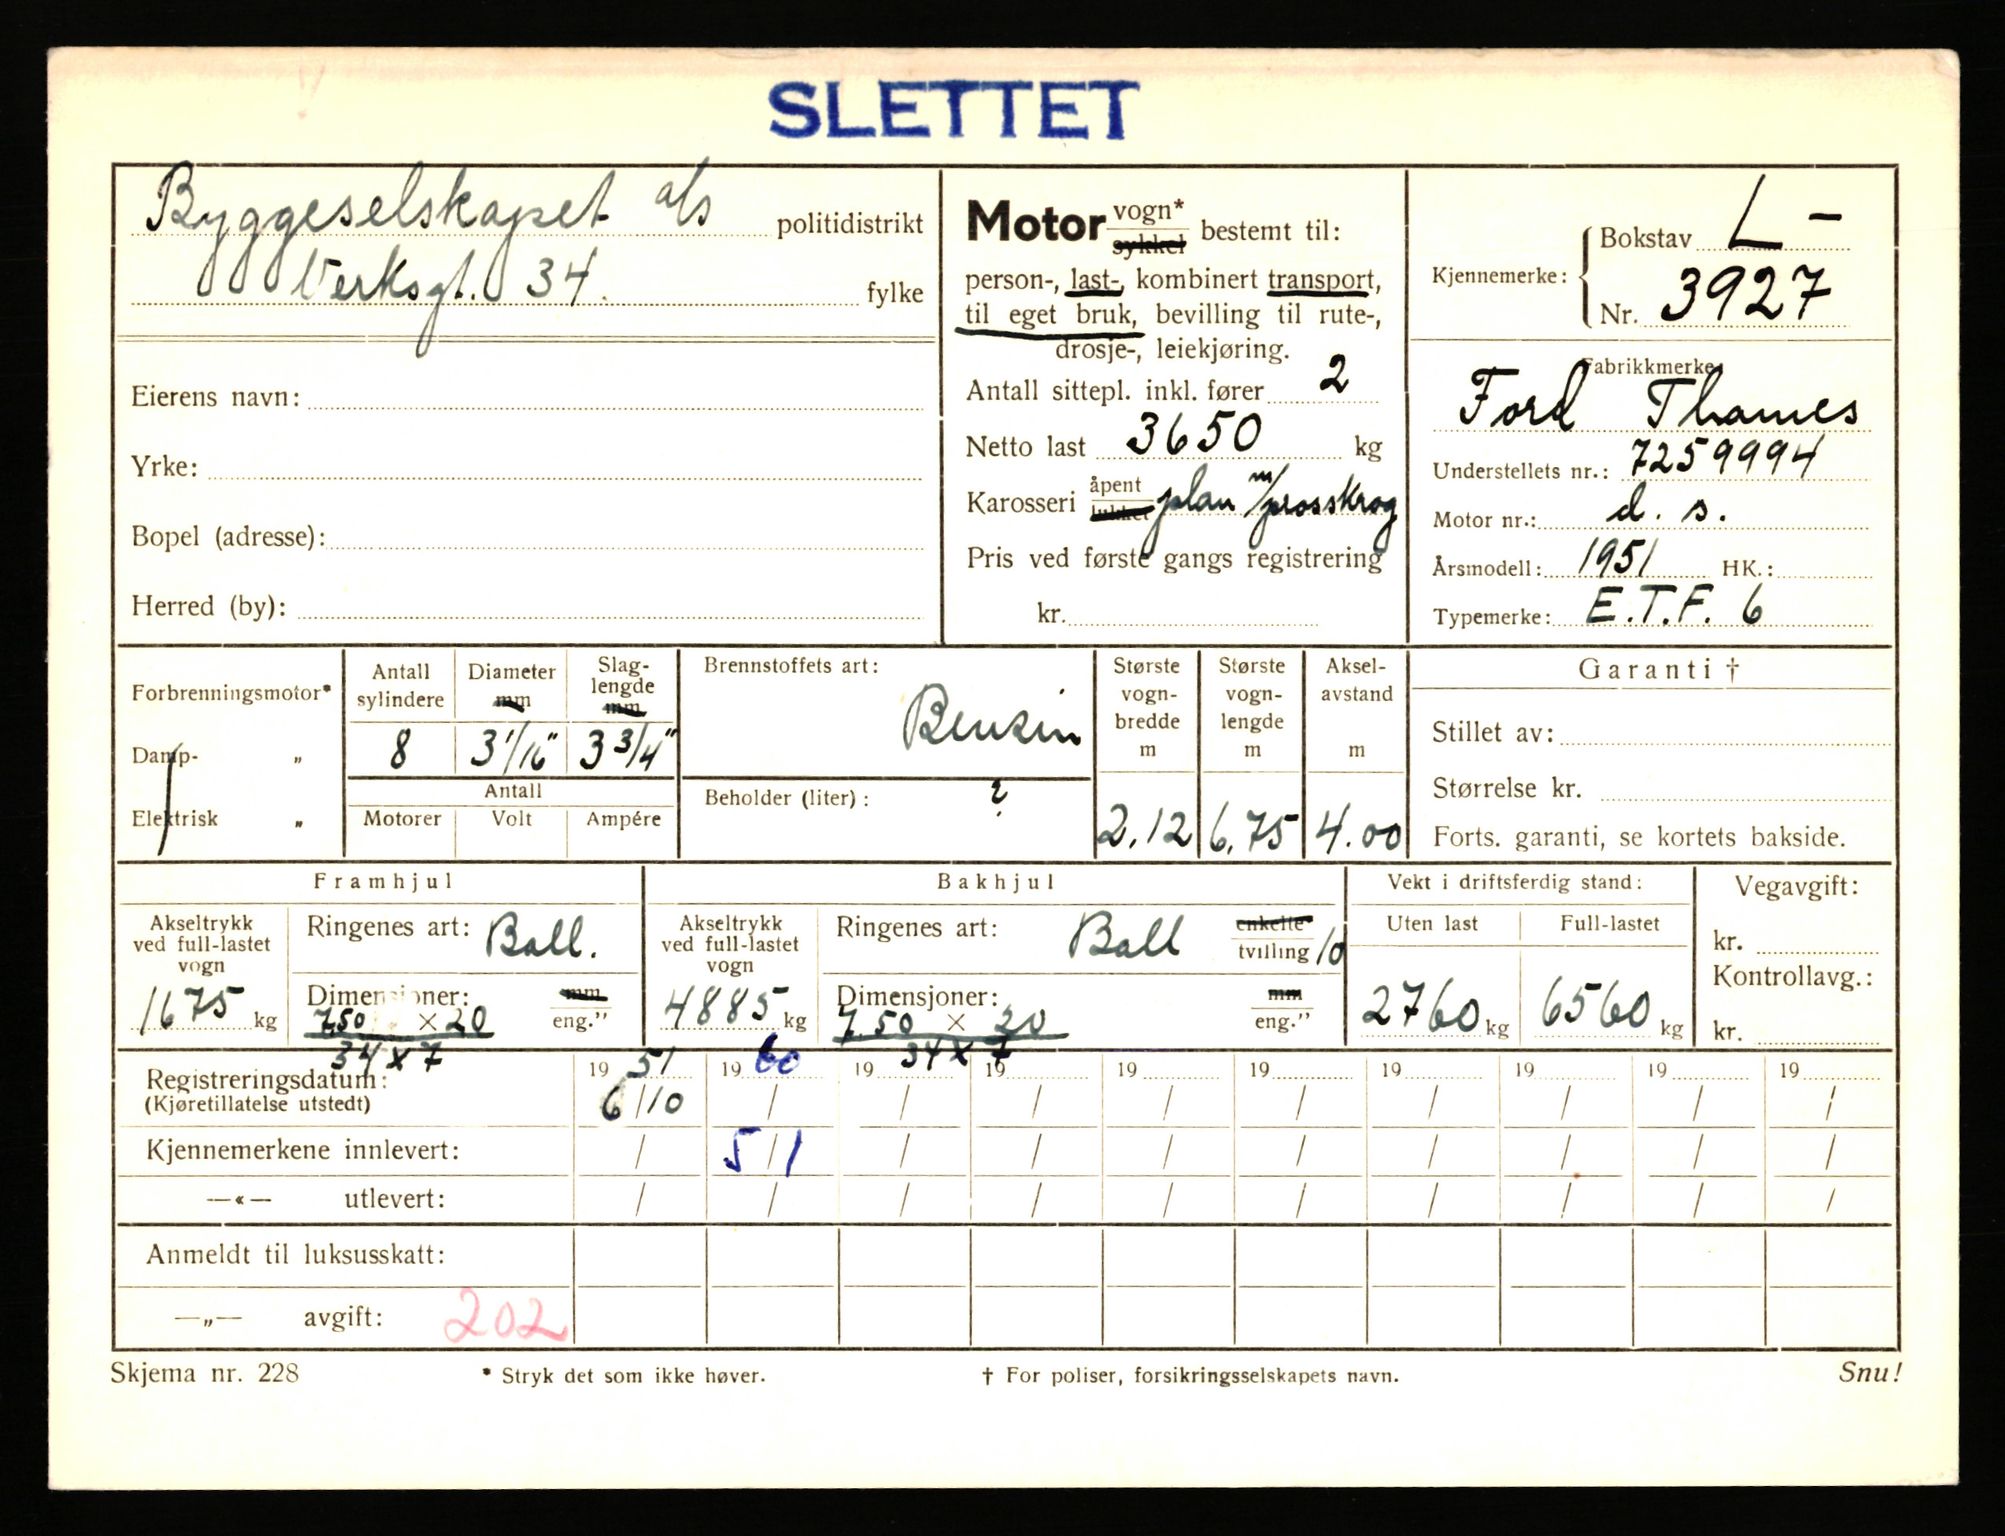 SLETTET
Byggeselskapet a/s politidistrikt
Verksgt. 34. fylke
Eierens navn:
Yrke:
Bopel (adresse):
Herred (by):
Motor vogn* sykkel bestemt til:
person-, last-, kombinert transport,
til eget bruk, bevilling til rute-,
drosje-, leiekjøring.
Antall sittepl. inkl. fører 2
Netto last 3650 kg
Karosseri åpent lukket plan m/grosskrog
Pris ved første gangs registrering
kr.
Kjennemerke: Bokstav L-
Nr. 3927
Fabrikkmerke
Ford Thames
Understellets nr.: 7259994
Motor nr.: d. s.
Årsmodell: 1951 HK.:
Typemerke: E.T.F. 6
Forbrenningsmotor*
Damp- „
Elektrisk „
Antall sylindere
Diameter mm
Slag-
lengde
mm
8 3 1/16" 3 3/4"
Antall
Motorer Volt Ampére
Brennstoffets art:
Benzin
Beholder (liter): ?
Største
vogn-
bredde
m
2.12
Største
vogn-
lengde
m
6.75
Aksel-
avstand
m
4.00
Garanti †
Stillet av:
Størrelse kr.
Forts. garanti, se kortets bakside.
Framhjul
Akseltrykk
ved full-lastet
vogn
1675 kg
Ringenes art: Ball.
Dimensjoner: mm
7.50 × 20 eng."
34 x 7
Bakhjul
Akseltrykk
ved full-lastet
vogn
4885 kg
Ringenes art: Ball enkelte tvilling 10
Dimensjoner: mm
7.50 × 20 eng."
34 x 7
Vekt i driftsferdig stand:
Uten last Full-lastet
2760 kg 6560 kg
Vegavgift:
kr.
Kontrollavg.:
kr.
Registreringsdatum: 19 51 19 60 19 19 19 19 19 19 19 19
(Kjøretillatelse utstedt) 6/10 / / / / / / / / /
Kjennemerkene innlevert: / 5/1 / / / / / / / /
—«— utlevert: / / / / / / / / / /
Anmeldt til luksusskatt:
—„— avgift: 202
Skjema nr. 228 * Stryk det som ikke høver. † For poliser, forsikringsselskapets navn. Snu!